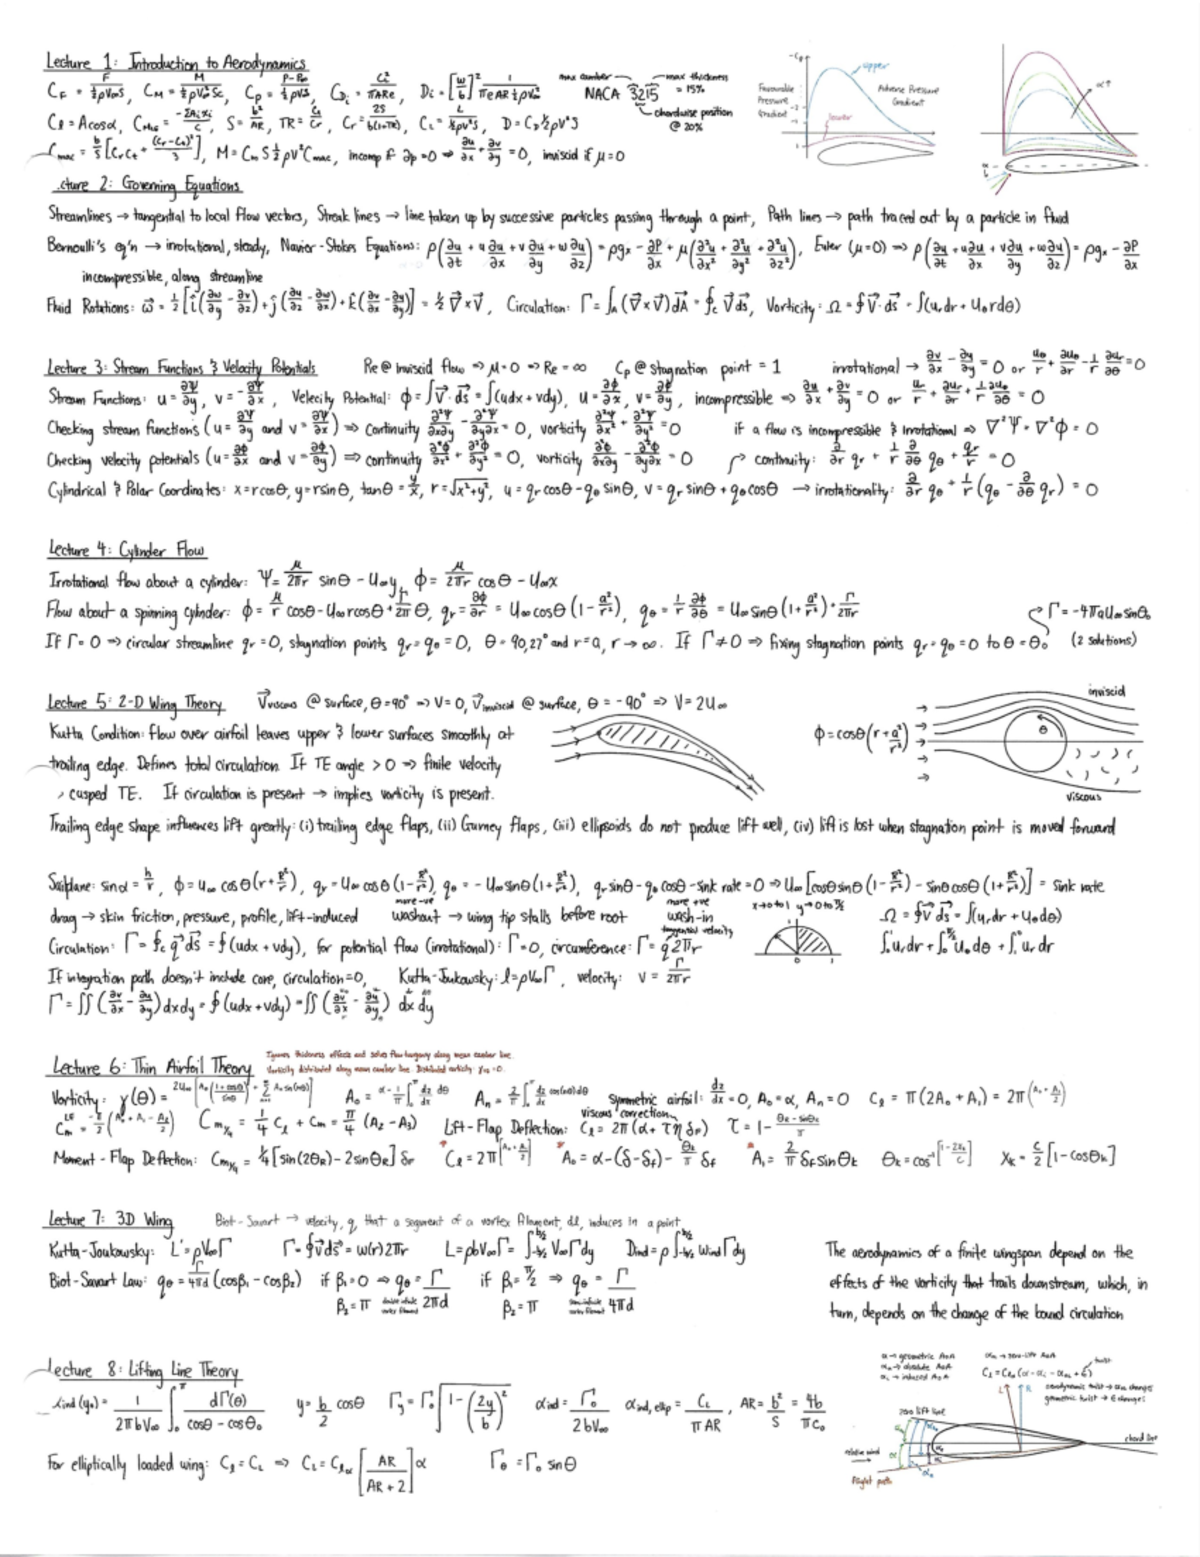 Lecture 1: Introduction to Aerodynamics
C_F = F/(½ρV∞S), C_M = M/(½ρV∞²Sc), C_p = (P-P∞)/(½ρV²), C_Di = C_L²/(πARe), Di = [w/b]² 1/(πeAR½ρV∞²)
max camber
max thickness = 15%
NACA 3215
chordwise position @ 20%
Cl = Acosα, C_MLE = -ΣAixi/c, S = b²/AR, TR = Ct/Cr, Cr = 2S/(b(1+TR)), C_L = L/(½ρV²S), D = C_D½ρV²S
C_mac = b/S[CrCt + (Cr-Ct)²/3], M = C_m S½ρV²C_mac, incomp if ∂ρ=0 ⇒ ∂u/∂x + ∂v/∂y = 0, inviscid if μ=0
-Cp
upper
Favourable Pressure Gradient
Adverse Pressure Gradient
lower
α↑
cture 2: Governing Equations
Streamlines → tangential to local flow vectors, Streak lines → line taken up by successive particles passing through a point, Path lines → path traced out by a particle in fluid
Bernoulli's eq'n → irrotational, steady, Navior-Stokes Equations: ρ(∂u/∂t + u∂u/∂x + v∂u/∂y + w∂u/∂z) = ρgx - ∂P/∂x + μ(∂²u/∂x² + ∂²u/∂y² + ∂²u/∂z²), Euler (μ=0) ⇒ ρ(∂u/∂t + u∂u/∂x + v∂u/∂y + w∂u/∂z) = ρgx - ∂P/∂x
incompressible, along streamline
Fluid Rotations: ω⃗ = ½[î(∂w/∂y - ∂v/∂z) + ĵ(∂u/∂z - ∂w/∂x) + k̂(∂v/∂x - ∂u/∂y)] = ½∇⃗×V⃗, Circulation: Γ = ∫A(∇⃗×V⃗)dA⃗ = ∮c V⃗ds, Vorticity: Ω = ∮V⃗·ds⃗ = ∫(u_r dr + u_θ rdθ)
Lecture 3: Stream Functions & Velocity Potentials Re @ Inviscid flow ⇒ μ=0 ⇒ Re = ∞ Cp @ stagnation point = 1 irrotational → ∂v/∂x - ∂u/∂y = 0 or uθ/r + ∂uθ/∂r - 1/r ∂ur/∂θ = 0
Stream Functions: u = ∂Ψ/∂y, v = -∂Ψ/∂x, Velecity Potential: φ = ∫V⃗·ds⃗ = ∫(udx + vdy), u = ∂φ/∂x, v = ∂φ/∂y, incompressible ⇒ ∂u/∂x + ∂v/∂y = 0 or ur/r + ∂ur/∂r + 1/r ∂uθ/∂θ = 0
Checking stream functions (u = ∂Ψ/∂y and v = ∂Ψ/∂x) ⇒ continuity ∂²Ψ/∂x∂y - ∂²Ψ/∂y∂x = 0, vorticity ∂²Ψ/∂x² + ∂²Ψ/∂y² = 0 if a flow is incompressible & irrotational ⇒ ∇²Ψ = ∇²φ = 0
Checking velocity potentials (u = ∂φ/∂x and v = ∂φ/∂y) ⇒ continuity ∂²φ/∂x² + ∂²φ/∂y² = 0, vorticity ∂²φ/∂x∂y - ∂²φ/∂y∂x = 0 continuity: ∂/∂r qr + 1/r ∂/∂θ qθ + qr/r = 0
Cylindrical & Polar Coordinates: x = rcosθ, y = rsinθ, tanθ = y/x, r = √(x²+y²), u = qr cosθ - qθ sinθ, v = qr sinθ + qθ cosθ → irrotationality: ∂/∂r qθ + 1/r(qθ - ∂/∂θ qr) = 0
Lecture 4: Cylinder Flow
Irrotational flow about a cylinder: Ψ = μ/2πr sinθ - U∞y, φ = μ/2πr cosθ - U∞x
Flow about a spinning cylinder: φ = μ/r cosθ - U∞rcosθ + Γ/2π θ, qr = ∂φ/∂r = U∞cosθ(1 - a²/r²), qθ = 1/r ∂φ/∂θ = U∞sinθ(1 + a²/r²) + Γ/2πr
Γ = -4πaU∞sinθ₀
If Γ = 0 ⇒ circular streamline qr = 0, stagnation points qr = qθ = 0, θ = 90, 27° and r = a, r → ∞. If Γ ≠ 0 ⇒ fixing stagnation points qr = qθ = 0 to θ = θ₀ (2 solutions)
Lecture 5: 2-D Wing Theory V⃗viscous @ surface, θ = 90° ⇒ V = 0, V⃗inviscid @ surface, θ = -90° ⇒ V = 2U∞
Kutta Condition: flow over airfoil leaves upper & lower surfaces smoothly at
trailing edge. Defines total circulation. If TE angle > 0 ⇒ finite velocity
cusped TE. If circulation is present → implies vorticity is present.
φ = cosθ(r + a²/r²)
inviscid
θ
viscous
Trailing edge shape influences lift greatly: (i) trailing edge flaps, (ii) Gurney flaps, (iii) ellipsoids do not produce lift well, (iv) lift is lost when stagnation point is moved forward
Sailplane: sinα = h/r, φ = U∞ cosθ(r + R²/r), qr = U∞ cosθ(1 - R²/r²), qθ = -U∞sinθ(1 + R²/r²), qr sinθ - qθ cosθ - sink rate = 0 ⇒ U∞[cosθsinθ(1 - R²/r²) - sinθcosθ(1 + R²/r²)] = sink rate
more -ve
more +ve
x→0 to 1 y→0 to π/2
drag → skin friction, pressure, profile, lift-induced washout → wing tip stalls before root wash-in Ω = ∮V⃗ds⃗ = ∫(u_r dr + U_θ dθ)
tangential velocity
Circulation: Γ = ∮c q⃗ds⃗ = ∮(udx + vdy), for potential flow (irrotational): Γ = 0, circumference: Γ = q2πr ∫₀¹u_r dr + ∫₀^π/2 u_θ dθ + ∫₁⁰ u_r dr
0 1
If integration path doesn't include core, circulation=0, Kutta-Joukowsky: l = ρV∞Γ, velocity: v = Γ/2πr
Γ = ∬(∂v/∂x - ∂u/∂y)dxdy = ∮(udx + vdy) = ∬(∂v/∂x - ∂u/∂y) dx dy
Lecture 6: Thin Airfoil Theory
Ignores thickness effects and solves flow tangency along mean camber line.
Vorticity distributed along mean camber line. Distributed vorticity: γTE = 0.
Vorticity: γ(θ) = 2U∞[A₀((1+cosθ)/sinθ) + Σ An sin(nθ)] A₀ = α - 1/π ∫₀^π dz/dx dθ An = 2/π ∫₀^π dz/dx cos(nθ)dθ Symmetric airfoil: dz/dx = 0, A₀ = α, An = 0 Cl = π(2A₀ + A₁) = 2π(A₀ + A₁/2)
viscous correction
Cm^LE = -π/2(A₀ + A₁ - A₂/2) Cm_x/4 = ¼Cl + Cm = π/4(A₂ - A₃) Lift-Flap Deflection: Cl = 2π(α + τηδF) τ = 1 - (θk - sinθk)/π
Moment-Flap Deflection: Cm_x/4 = ¼[sin(2θR) - 2sinθR]δF Cl = 2π[A₀ + A₁/2] A₀ = α - (δ - δf) - θk/π δf A₁ = 2/π δf sinθk θk = cos⁻¹[1 - 2xk/c] Xk = c/2[1 - cosθk]
Lecture 7: 3D Wing Biot-Savart → velocity, q, that a segment of a vortex filament, dl, induces in a point
Kutta-Joukowsky: L' = ρV∞Γ Γ = ∮v⃗ds⃗ = w(r)2πr L = ρbV∞Γ = ∫₋b/2^b/2 V∞Γdy Dind = ρ∫₋b/2^b/2 WindΓdy
Biot-Savart Law: qθ = Γ/4πd (cosβ₁ - cosβ₂) if β₁ = 0 ⇒ qθ = Γ/2πd if β₁ = π/2 ⇒ qθ = Γ/4πd
β₂ = π β₂ = π
The aerodynamics of a finite wingspan depend on the
effects of the vorticity that trails downstream, which, in
turn, depends on the change of the bound circulation
Lecture 8: Lifting Line Theory
αind(y₀) = 1/(2πbV∞) ∫₀^π dΓ(θ)/(cosθ - cosθ₀) y = b/2 cosθ Γy = Γ₀√(1 - (2y/b)²) αind = Γ₀/2bV∞ αind, ellip = CL/πAR, AR = b²/S = 4b/πc₀
For elliptically loaded wing: Cl = CL ⇒ CL = Clα[AR/(AR + 2)]α Γθ = Γ₀ sinθ
α → geometric AoA
αa → absolute AoA
αi → induced AoA
α₀ → zero-lift AoA
twist
aerodynamic twist → α₀ changes
geometric twist → ε changes
zero lift line
chord line
relative wind
flight path